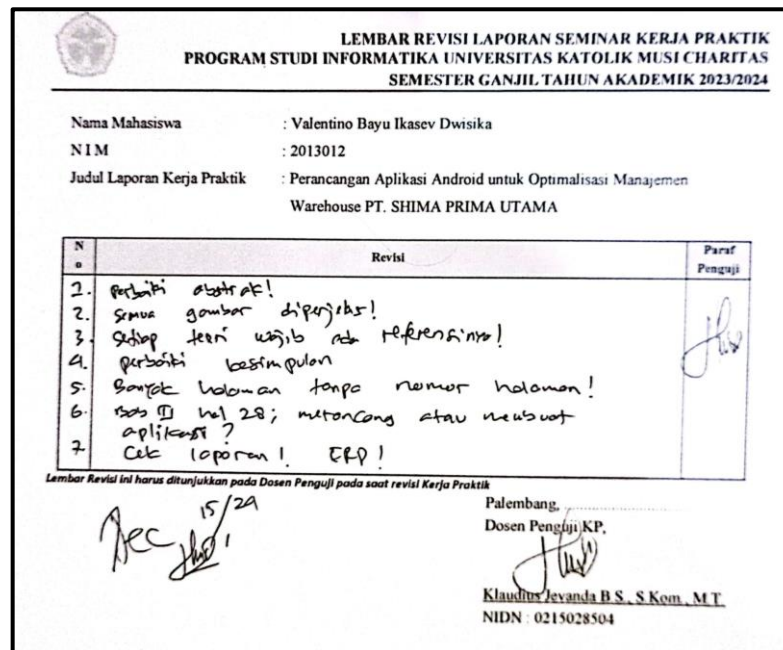 LEMBAR REVISI LAPORAN SEMINAR KERJA PRAKTIK
PROGRAM STUDI INFORMATIKA UNIVERSITAS KATOLIK MUSI CHARITAS
SEMESTER GANJIL TAHUN AKADEMIK 2023/2024
Nama Mahasiswa : Valentino Bayu Ikasev Dwisika
N I M : 2013012
Judul Laporan Kerja Praktik : Perancangan Aplikasi Android untuk Optimalisasi Manajemen
Warehouse PT. SHIMA PRIMA UTAMA
No Revisi Paraf Penguji
1. perbaiki abstrak!
2. semua gambar diperjelas!
3. setiap teori wajib ada referensinya!
4. perbaiki kesimpulan
5. Banyak halaman tanpa nomor halaman!
6. Bab III hal 28; merancang atau membuat
aplikasi?
7. Cek laporan! ERP!
Lembar Revisi ini harus ditunjukkan pada Dosen Penguji pada saat revisi Kerja Praktik
Acc 15/
Palembang,
Dosen Penguji KP,
Klaudius Jevanda B.S., S.Kom., M.T.
NIDN : 0215028504